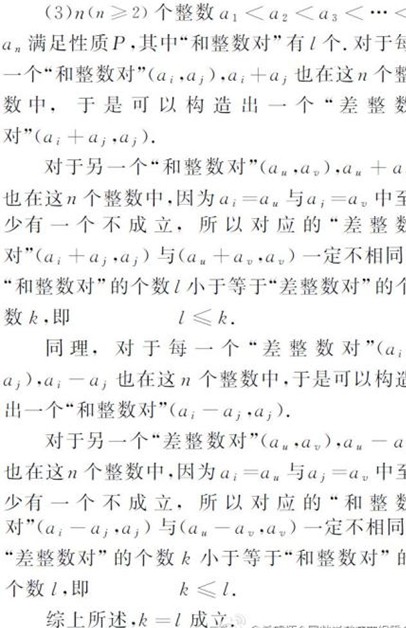 (3)n(n≥2)个整数a₁<a₂<a₃<⋯<
aₙ满足性质P,其中“和整数对”有l个.对于每
一个“和整数对”(aᵢ,aⱼ),aᵢ+aⱼ也在这n个整
数中，于是可以构造出一个“差整数
对”(aᵢ+aⱼ,aⱼ).
对于另一个“和整数对”(aᵤ,aᵥ),aᵤ+a
也在这n个整数中,因为aᵢ=aᵤ与aⱼ=aᵥ中至
少有一个不成立，所以对应的“差整数
对”(aᵢ+aⱼ,aⱼ)与(aᵤ+aᵥ,aᵥ)一定不相同
“和整数对”的个数l小于等于“差整数对”的个
数k,即 l≤k.
同理，对于每一个“差整数对”(aᵢ
aⱼ),aᵢ-aⱼ也在这n个整数中,于是可以构造
出一个“和整数对”(aᵢ-aⱼ,aⱼ).
对于另一个“差整数对”(aᵤ,aᵥ),aᵤ-a
也在这n个整数中,因为aᵢ=aᵤ与aⱼ=aᵥ中至
少有一个不成立，所以对应的“和整数
对”(aᵢ-aⱼ,aⱼ)与(aᵤ-aᵥ,aᵥ)一定不相同
“差整数对”的个数k小于等于“和整数对”的
个数l,即 k≤l.
综上所述,k=l成立.